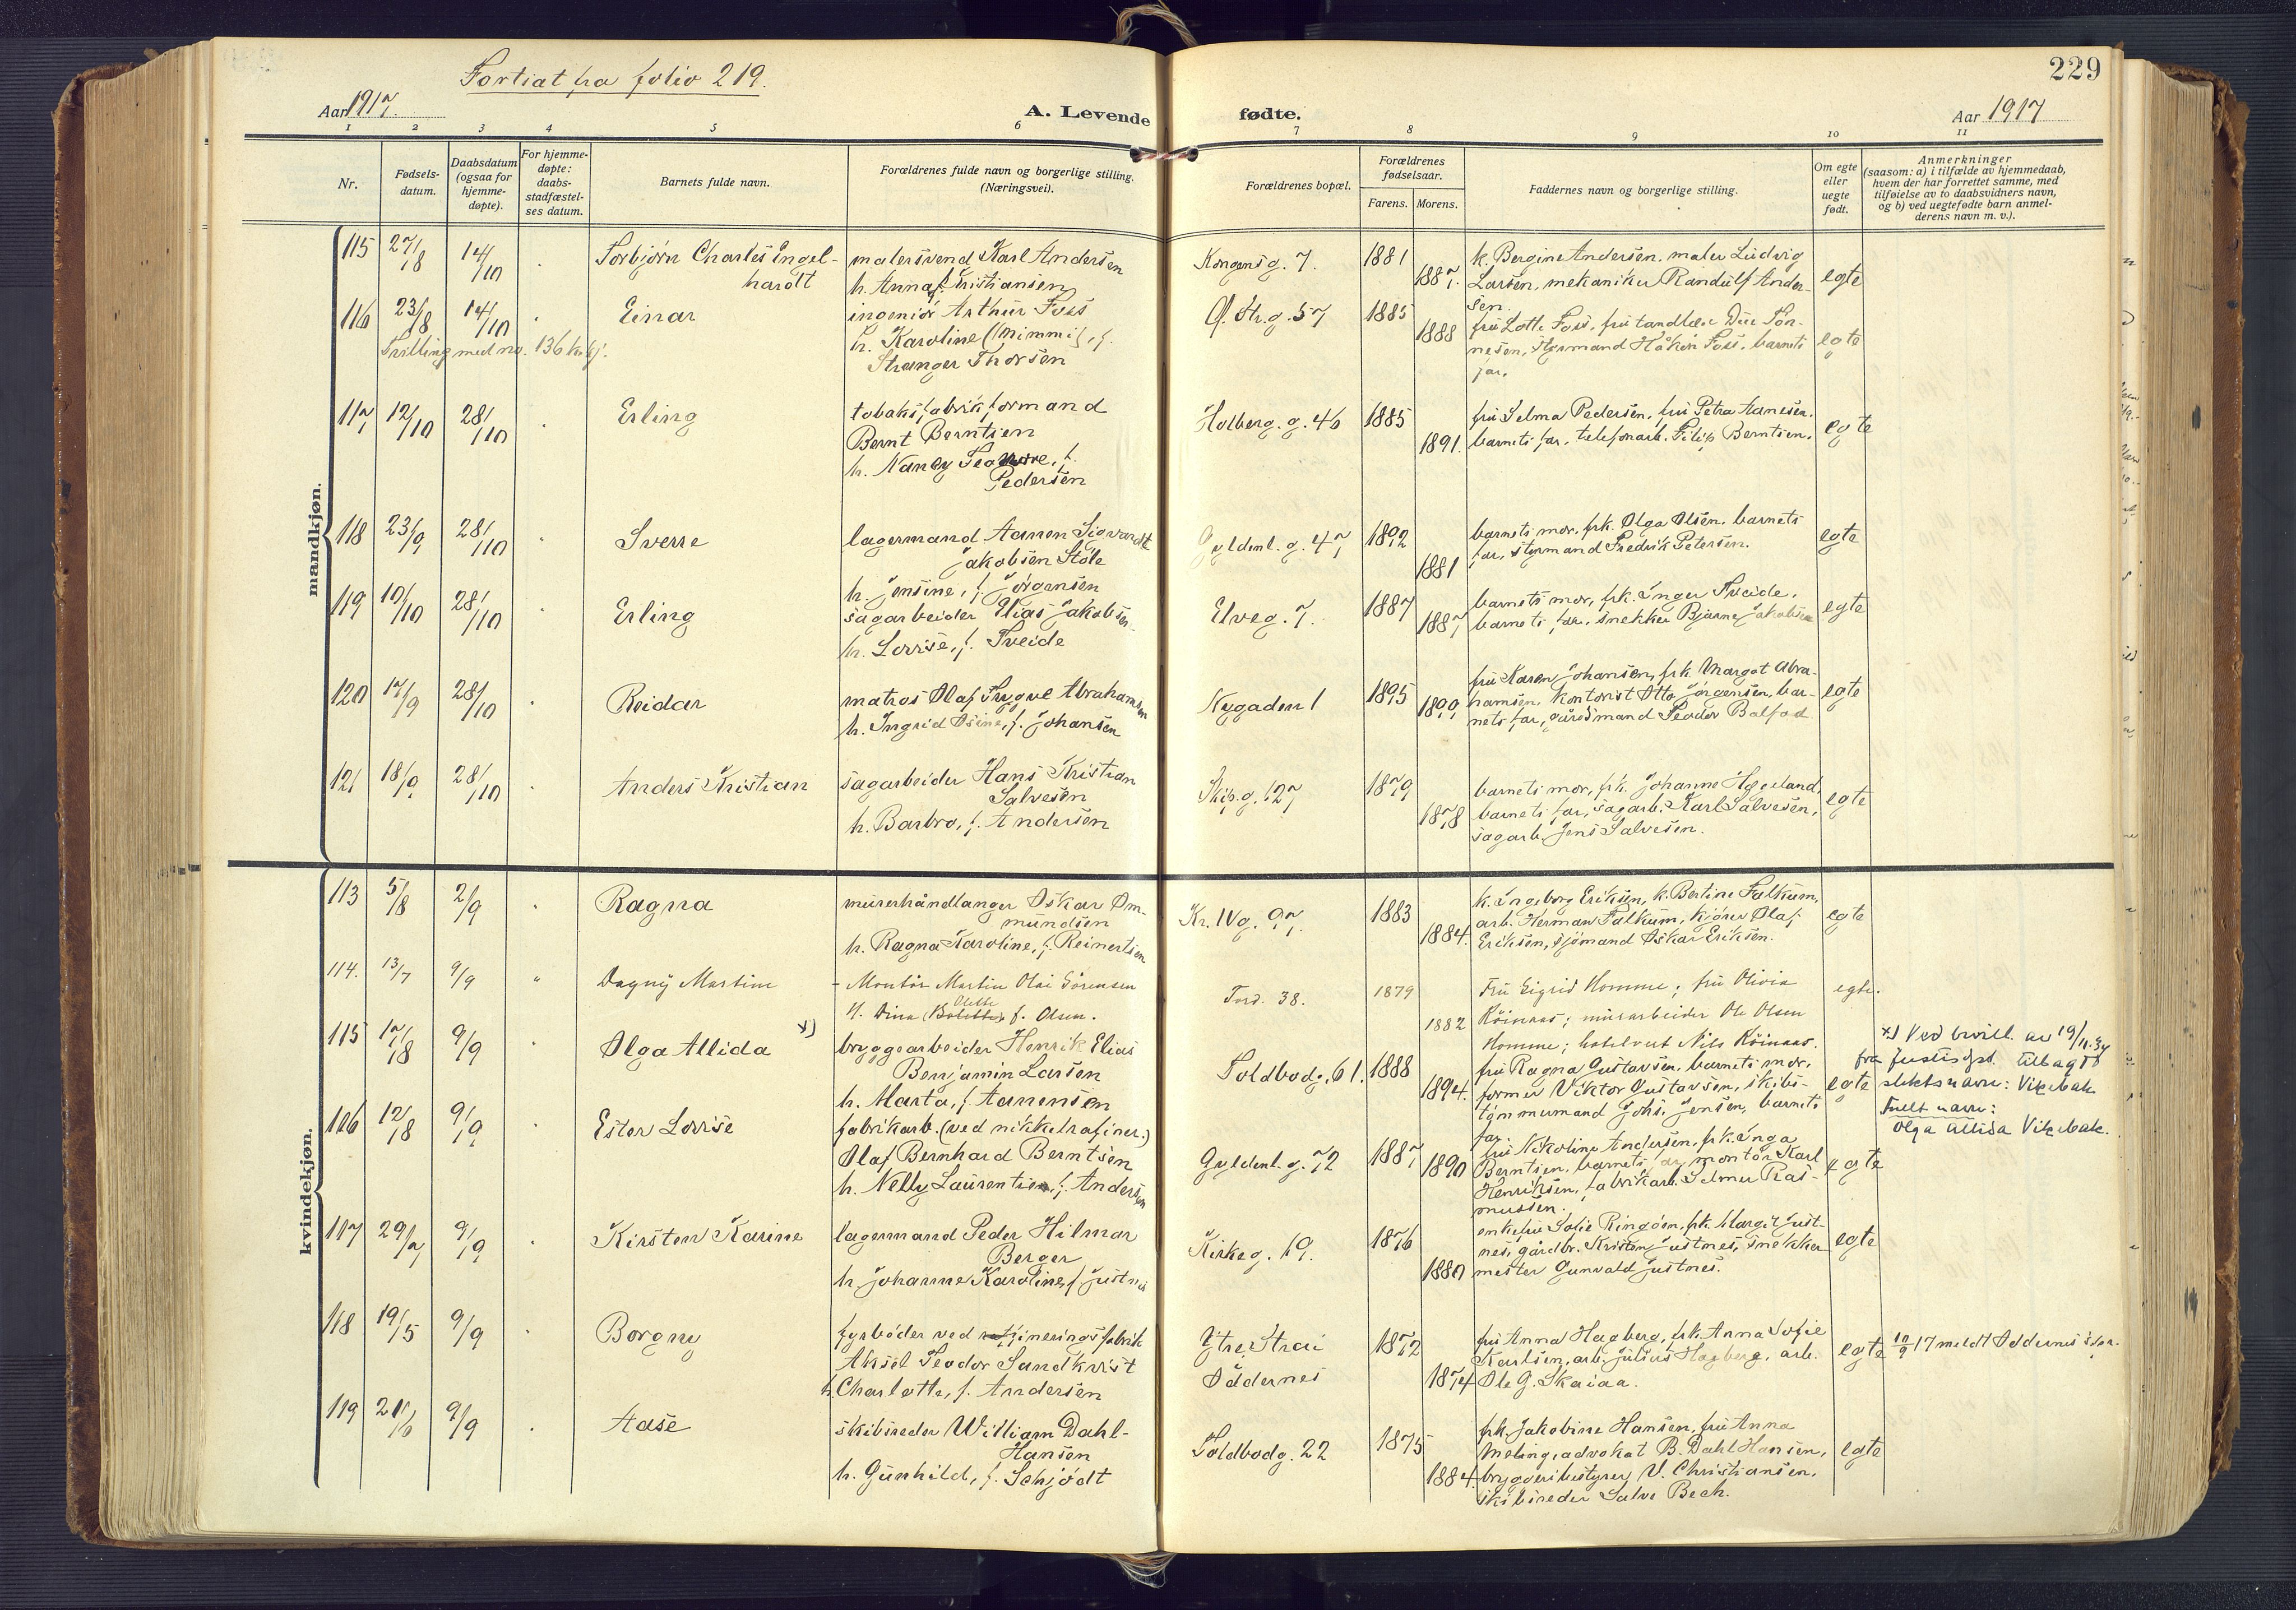 Fortsat fra folio 219.
229
Aar 1917.
A. Levende
fødte.
Aar 1917
1 2 3 4 5 6 7 8 9 10 11
Nr.
Fødsels-
datum.
Daabsdatum
(ogsaa for
hjemme-
døpte).
For hjemme-
døpte:
daabs-
stadfæstel-
ses datum.
Barnets fulde navn.
Forældrenes fulde navn og borgerlige stilling.
(Næringsvei).
Forældrenes bopæl.
Forældrenes
fødselsaar.
Farens. Morens.
Faddernes navn og borgerlige stilling.
Om egte
eller
uegte
født.
Anmerkninger
(saasom: a) i tilfælde av hjemmedaab,
hvem der har forrettet samme, med
tilføielse av to daabsvidners navn,
og b) ved uegtefødte barn anmel-
derens navn m. v.).
mandkjøn.
115 27/8 14/10 Torbjørn Charles Engel-
hardt
malersvend Karl Andersen
h. Anna f. Kristiansen
Kongensg. 7. 1881 1887.
k. Bergine Andersen, maler Ludvig
Larsen, mekaniker Randulf Ander-
sen.
egte
116 23/8 14/10 Einar
Tvilling med no. 136 kvkj.
ingeniør Arthur Foss
h. Karoline (Mimmi), f.
Stranger Thorsen
Ø. Str.g. 57 1885 1888
fru Lotte Foss, fru tandlæge Due Tor-
nesen, styrmand Håkon Foss, barnets
far.
egte
117 12/10 28/10 Erling
tobaksfabrikformand
Bernt Berntsen
h. Nancy Teodore, f.
Pedersen
Holberg. g. 46 1885 1891.
fru Selma Pedersen, fru Petra Aanesen.
barnets far, telefonarb. Filip Berntsen.
egte
118 23/9 28/10 Sverre
lagermand Aanen Sigvardt
Jakobsen Støle
h. Jensine, f. Jørgensen
Gyldenl. g. 47 1892 1881
barnets mor, frk. Olga Olsen, barnets
far, styrmand Fredrik Petersen.
egte
119 10/10 28/10 Erling
sagarbeider Elias Jakobsen
h. Lovise, f. Tveide
Elveg. 7. 1887 1887
barnets mor, frk. Inger Tveide,
barnets far, snekker Bjarne Jakobsen
egte
120 17/9 28/10 Reidar
matros Olaf Trygve Abrahamsen
h. Ingrid Osine, f. Johansen
Nygaden 1 1895 1899
fru Karen Johansen, frk. Margot Abra-
hamsen, kontorist Otto Jørgensen, bar-
nets far, gårdsmand Teodor Balfod.
egte
121 18/9 28/10 Anders Kristian
sagarbeider Hans Kristian
Salvesen
h. Barbro, f. Andersen
Skip.g. 127 1879 1878
barnets mor, frk. Johanne Hægeland,
barnets far, sagarb. Karl Salvesen,
sagarb. Jens Salvesen.
egte
kvindekjøn.
113 5/8 2/9 Ragna
murerhåndlanger Oskar Om-
mundsen
h. Ragna Karoline, f. Reinertsen
Kr. IV g. 97. 1883 1884.
k. Ingeborg Eriksen, k. Bertine Falkum,
arb. Herman Falkum, kjører Olaf
Eriksen, sjømand Oskar Eriksen.
egte
114. 13/7 9/9 " Dagny Martine
- Montør Martin Olai Sørensen
H. Dina Olette f. Olsen.
Tord. 38. 1879 1882
Fru Sigrid Homme; fru Olivia
Röinaas; murarbeider Ole Olsen
Homme; hotelvært Nils Röinaas.
egte.
115 17/8 9/9 Olga Allida x)
bryggearbeider Henrik Elias
Benjamin Larsen
h. Marta, f. Aanensen
Toldbodg. 61. 1888 1894.
fru Ragna Gustavsen, barnets mor,
former Viktor Gustavsen, skibs-
tømmermand Johs. Jensen, barnets
far.
egte
x) Ved bevill. av 19/11.34
fra Justisdpt. tillagt
slektsnavn: Vikebak
Fuldt navn:
Olga Allida Vikebak.
116 12/8 9/9 Ester Lovise
fabrikarb. (ved nikkelrafiner.)
Olaf Bernhard Berntsen
h. Nelly Laurentine, f. Andersen
Gyldenl. g. 72 1887 1890
fru Nikoline Andersen, frk. Inga
Berntsen, barnets far, montør Karl
Henriksen, fabrikarb. Selmer Ras-
mussen.
egte
117 29/7 9/9 Kirsten Karine
lagermand Peder Hilmar
Berger
h. Johanne Karoline, f. Justnes
Kirkeg. 19. 1876 1880
enkefru Sofie Ringøen, frk. Margit Just-
nes, gårdbr. Kristen Justnes, snekker-
mester Gunvald Justnes.
egte
118 19/5 9/9 Borgny
fyrbøder ved raffineringsfabrik
Aksel Teodor Sandkvist
h. Charlotte, f. Andersen
Ytre Strai
Oddernes
1872 1874
fru Anna Hagberg, frk. Anna Sofie
Karlsen, arb. Julius Hagberg, arb.
Ole G. Skaiaa.
egte
10/9 17 meldt Oddernes s.pr.
119 21/6 9/9 Aase
skibsreder William Dahl-
Hansen
h. Gunhild, f. Schjødt
Toldbodg. 22 1875 1884.
frk. Jakobine Hansen, fru Anna
Meling, advokat B. Dahl Hansen,
bryggeribestyrer V. Christiansen,
skibsreder Salve Bech.
egte